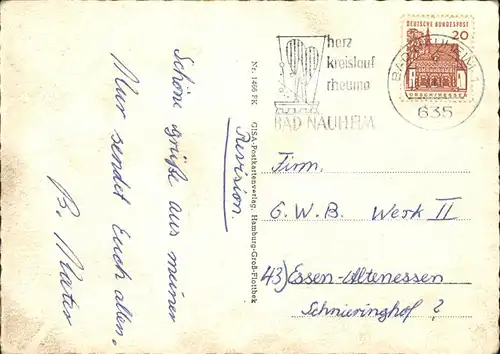 Schöne Grüße aus meiner
Kur sendet Euch allen.
B.
Nr. 1466 FK
GISA-Postkartenverlag, Hamburg-Groß-Flottbek
Revision.
herz
kreislauf
rheuma
BAD NAUHEIM
DEUTSCHE BUNDESPOST
20
LORSCH/HESSEN
BAD NAUHEIM 1
635
Firm.
G. W. B. Werk II
43) Essen-Altenessen
Schnieringhof ?